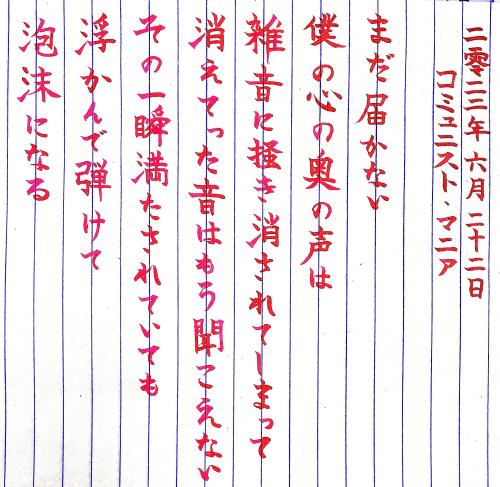 二零二三年 六月 二十二日
コミュニスト・マニア
まだ届かない
僕の心の奥の声は
雑音に掻き消されてしまって
消えてった音はもう聞こえない
その一瞬満たされていても
浮かんで弾けて
泡沫になる